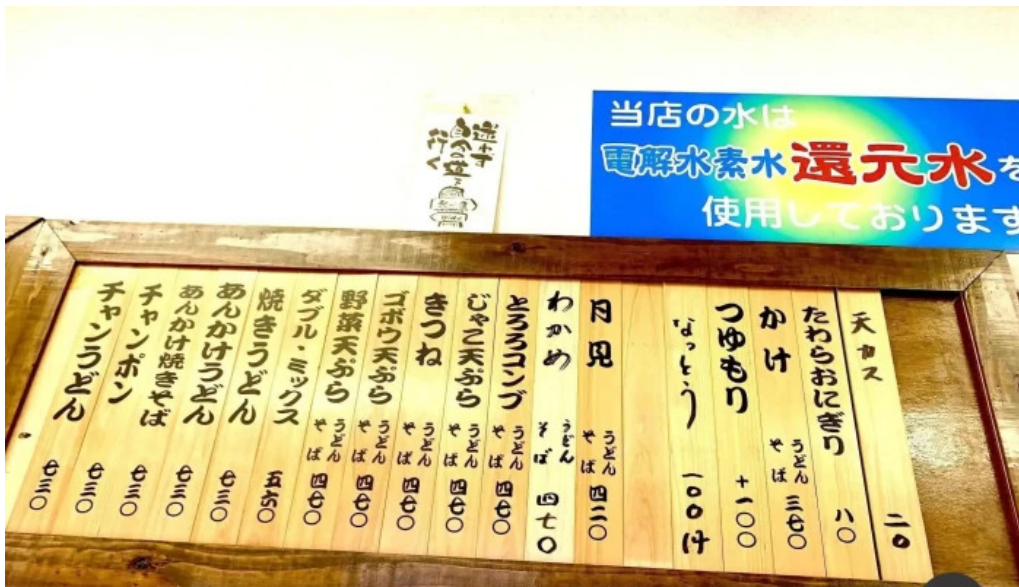 迷わず
自分の道を
行く
当店の水は
電解水素水還元水を
使用しております
天カス 二〇
たわらおにぎり 八〇
かけ うどん そば 三七〇
つゆもり +一〇〇
なっとう 一〇〇円
月見 うどん そば 四二〇
わかめ うどん そば 四七〇
とろろコンブ うどん そば 四七〇
じゃこ天ぷら うどん そば 四七〇
きつね うどん そば 四七〇
ゴボウ天ぷら うどん そば 四七〇
野菜天ぷら うどん そば 四七〇
ダブル・ミックス うどん そば 四七〇
焼きうどん 五六〇
あんかけうどん 七三〇
あんかけ焼きそば 七三〇
チャンポン 七三〇
チャンうどん 七三〇